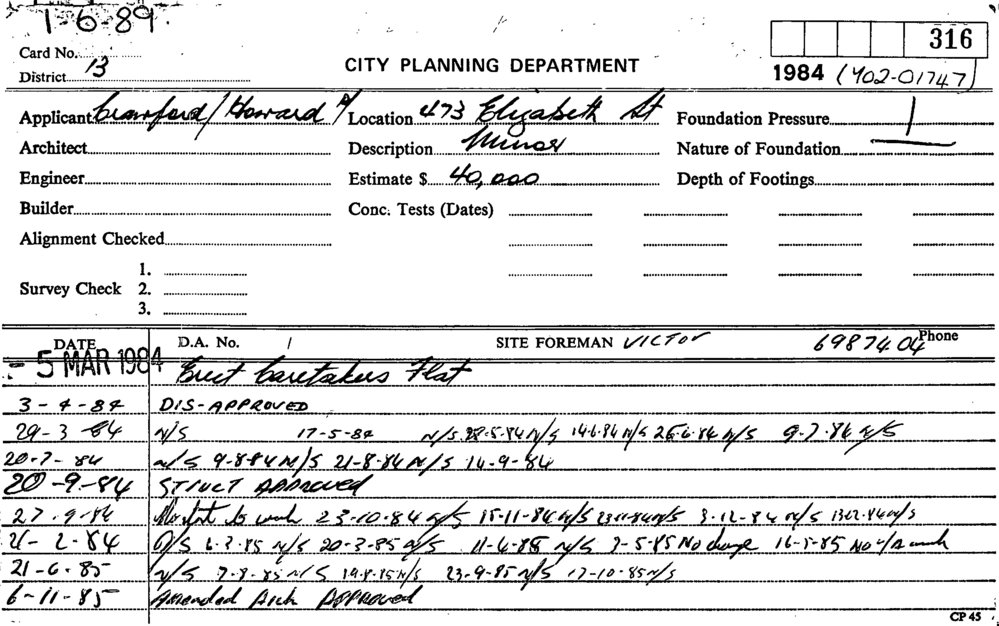 1-6-89
Card No.
District 13
CITY PLANNING DEPARTMENT
316
1984 (402-01747)
Applicant Crawford / Howard Location 473 Elizabeth St Foundation Pressure
Architect Description Minor Nature of Foundation
Engineer Estimate $ 40,000 Depth of Footings
Builder Conc. Tests (Dates)
Alignment Checked
1.
Survey Check 2.
3.
DATE D.A. No. / SITE FOREMAN VICTOR 6987404 Phone
- 5 MAR 1984 Erect Caretakers Flat
3-4-84 DIS-APPROVED
29-3 84 N/S 17-5-84 N/S 28-5-84 N/S 14.6.84 N/S 26.6.84 N/S 9-7-84 N/S
20-7-84 N/S 9-8-84 N/S 21-8-84 N/S 14-9-84
20-9-84 STRUCT APPROVED
27-9-84 to work 23-10-84 N/S 15-11-84 N/S 23-11-84 N/S 3-12-84 N/S 13.12.84 N/S
21-2-84 N/S 20-3-85 N/S 11-4-85 N/S 7-5-85 No change 16-5-85 No work
21-6-85 N/S 7-8-85 N/S 19-8-85 N/S 23-9-85 N/S 17-10-85 N/S
6-11-85 Amended Arch APPROVED
CP 45